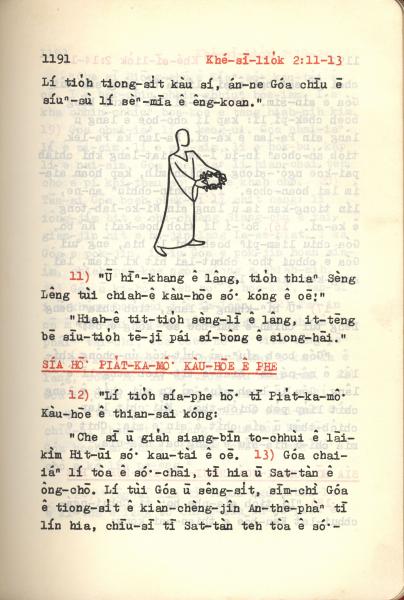 1191 Khé-sī-lio̍k 2:11-13
Lí tio̍h tiong-si̍t kàu sí, án-ne Góa chīu ē
síuⁿ-sù lí sèⁿ-mīa ê êng-koan."
11) "Ū hīⁿ-khang ê lâng, tio̍h thiaⁿ Sèng
Lêng tùi chiah-ê kàu-hōe só͘ kóng ê oē!"
"Hiah-ê tit-tio̍h sèng-lī ê lâng, it-tēng
bē sīu-tio̍h tē-jī pái sí-bông ê siong-hāi."
SÍA HŌ͘ PIA̍T-KA-MÔ͘ KÀU-HŌE Ê PHE
12) "Lí tio̍h sía-phe hō͘ tī Pia̍t-ka-mô͘
Kàu-hōe ê thian-sài kóng:
"Che sī ū giah siang-bīn to-chhui ê lâi-
kìm Hit-ūi só͘ kau-tài ê oē. 13) Góa chai-
iáⁿ lí tòa ê só͘-chāi, tī hia ū Sat-tàn ê
ông-chō. Lí tùi Góa ū sêng-si̍t, sīm-chì Góa
ê tiong-si̍t ê kiàn-chèng-jîn An-thê-phàⁿ tī
lín hia, chīu-sī tī Sat-tàn teh tòa ê só͘-